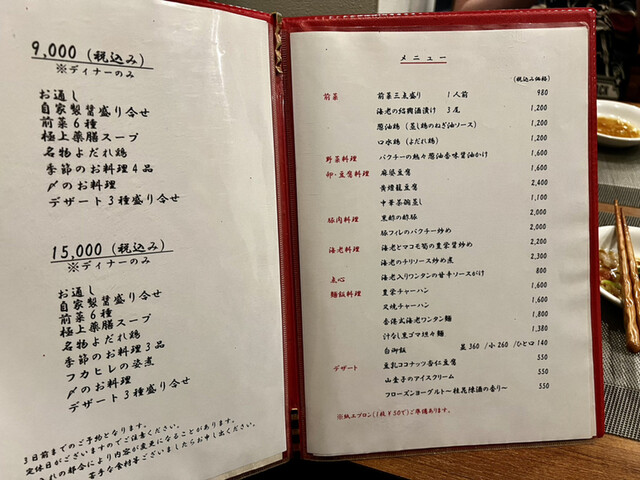 9,000 (税込み)
※ディナーのみ
お通し
自家製醤盛り合せ
前菜6種
極上薬膳スープ
名物よだれ鶏
季節のお料理4品
〆のお料理
デザート3種盛り合せ
15,000 (税込み)
※ディナーのみ
お通し
自家製醤盛り合せ
前菜6種
極上薬膳スープ
名物よだれ鶏
季節のお料理3品
フカヒレの姿煮
〆のお料理
デザート3種盛り合せ
3日前までのご予約となります。
定休日がございますのでご注意ください。
入れの都合により内容が変更になることがあります。
苦手な食材等ございましたらお申し出ください。
メニュー
(税込み価格)
前菜 前菜三点盛り 1人前 980
海老の紹興酒漬け 3尾 1,200
葱油鶏 (蒸し鶏のねぎ油ソース) 1,200
口水鶏 (よだれ鶏) 1,200
野菜料理 パクチーの熱々葱油香味醤油かけ 1,600
卵・豆腐料理 麻婆豆腐 1,600
黄燴龍豆腐 2,400
中華茶碗蒸し 1,100
豚肉料理 黒酢の酢豚 2,200
豚フィレのパクチー炒め 2,200
海老料理 海老とマコモ筍の豊栄醤炒め 2,300
海老のチリソース炒め煮 2,200
点心 海老入りワンタンの甘辛ソースがけ 800
麺飯料理 豊栄チャーハン 1,600
叉焼チャーハン 1,600
香港式海老ワンタン麺 1,800
汁なし黒ゴマ坦々麺 1,380
白御飯 並360 /小260 /ひと口140
デザート 豆乳ココナッツ杏仁豆腐 550
山査子のアイスクリーム 550
フローズンヨーグルト〜桂花陳酒の香り〜 550
※紙エプロン(1枚¥50で)ご準備あります。